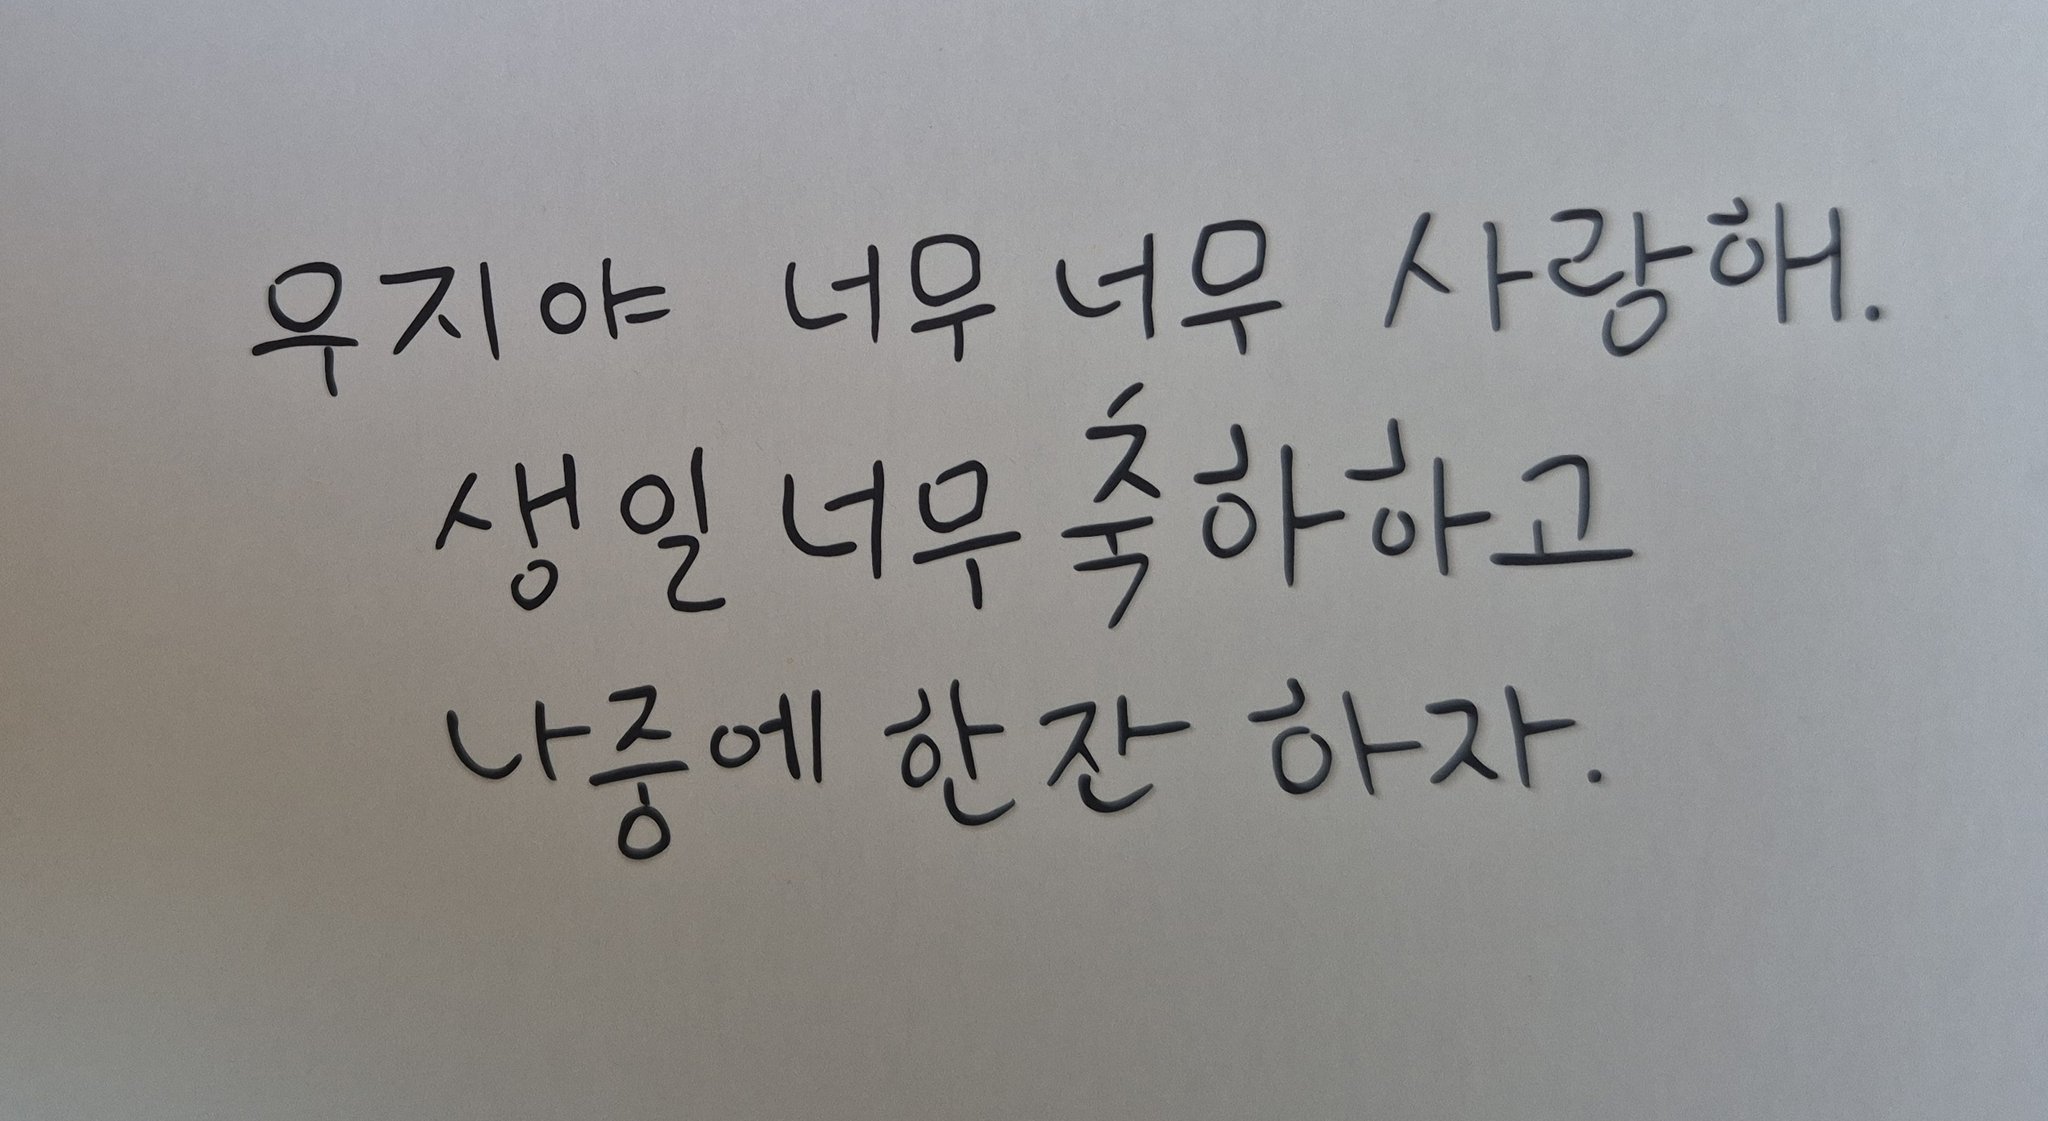 우지야 너무 너무 사랑해.
생일 너무 축하하고
나중에 한잔 하자.